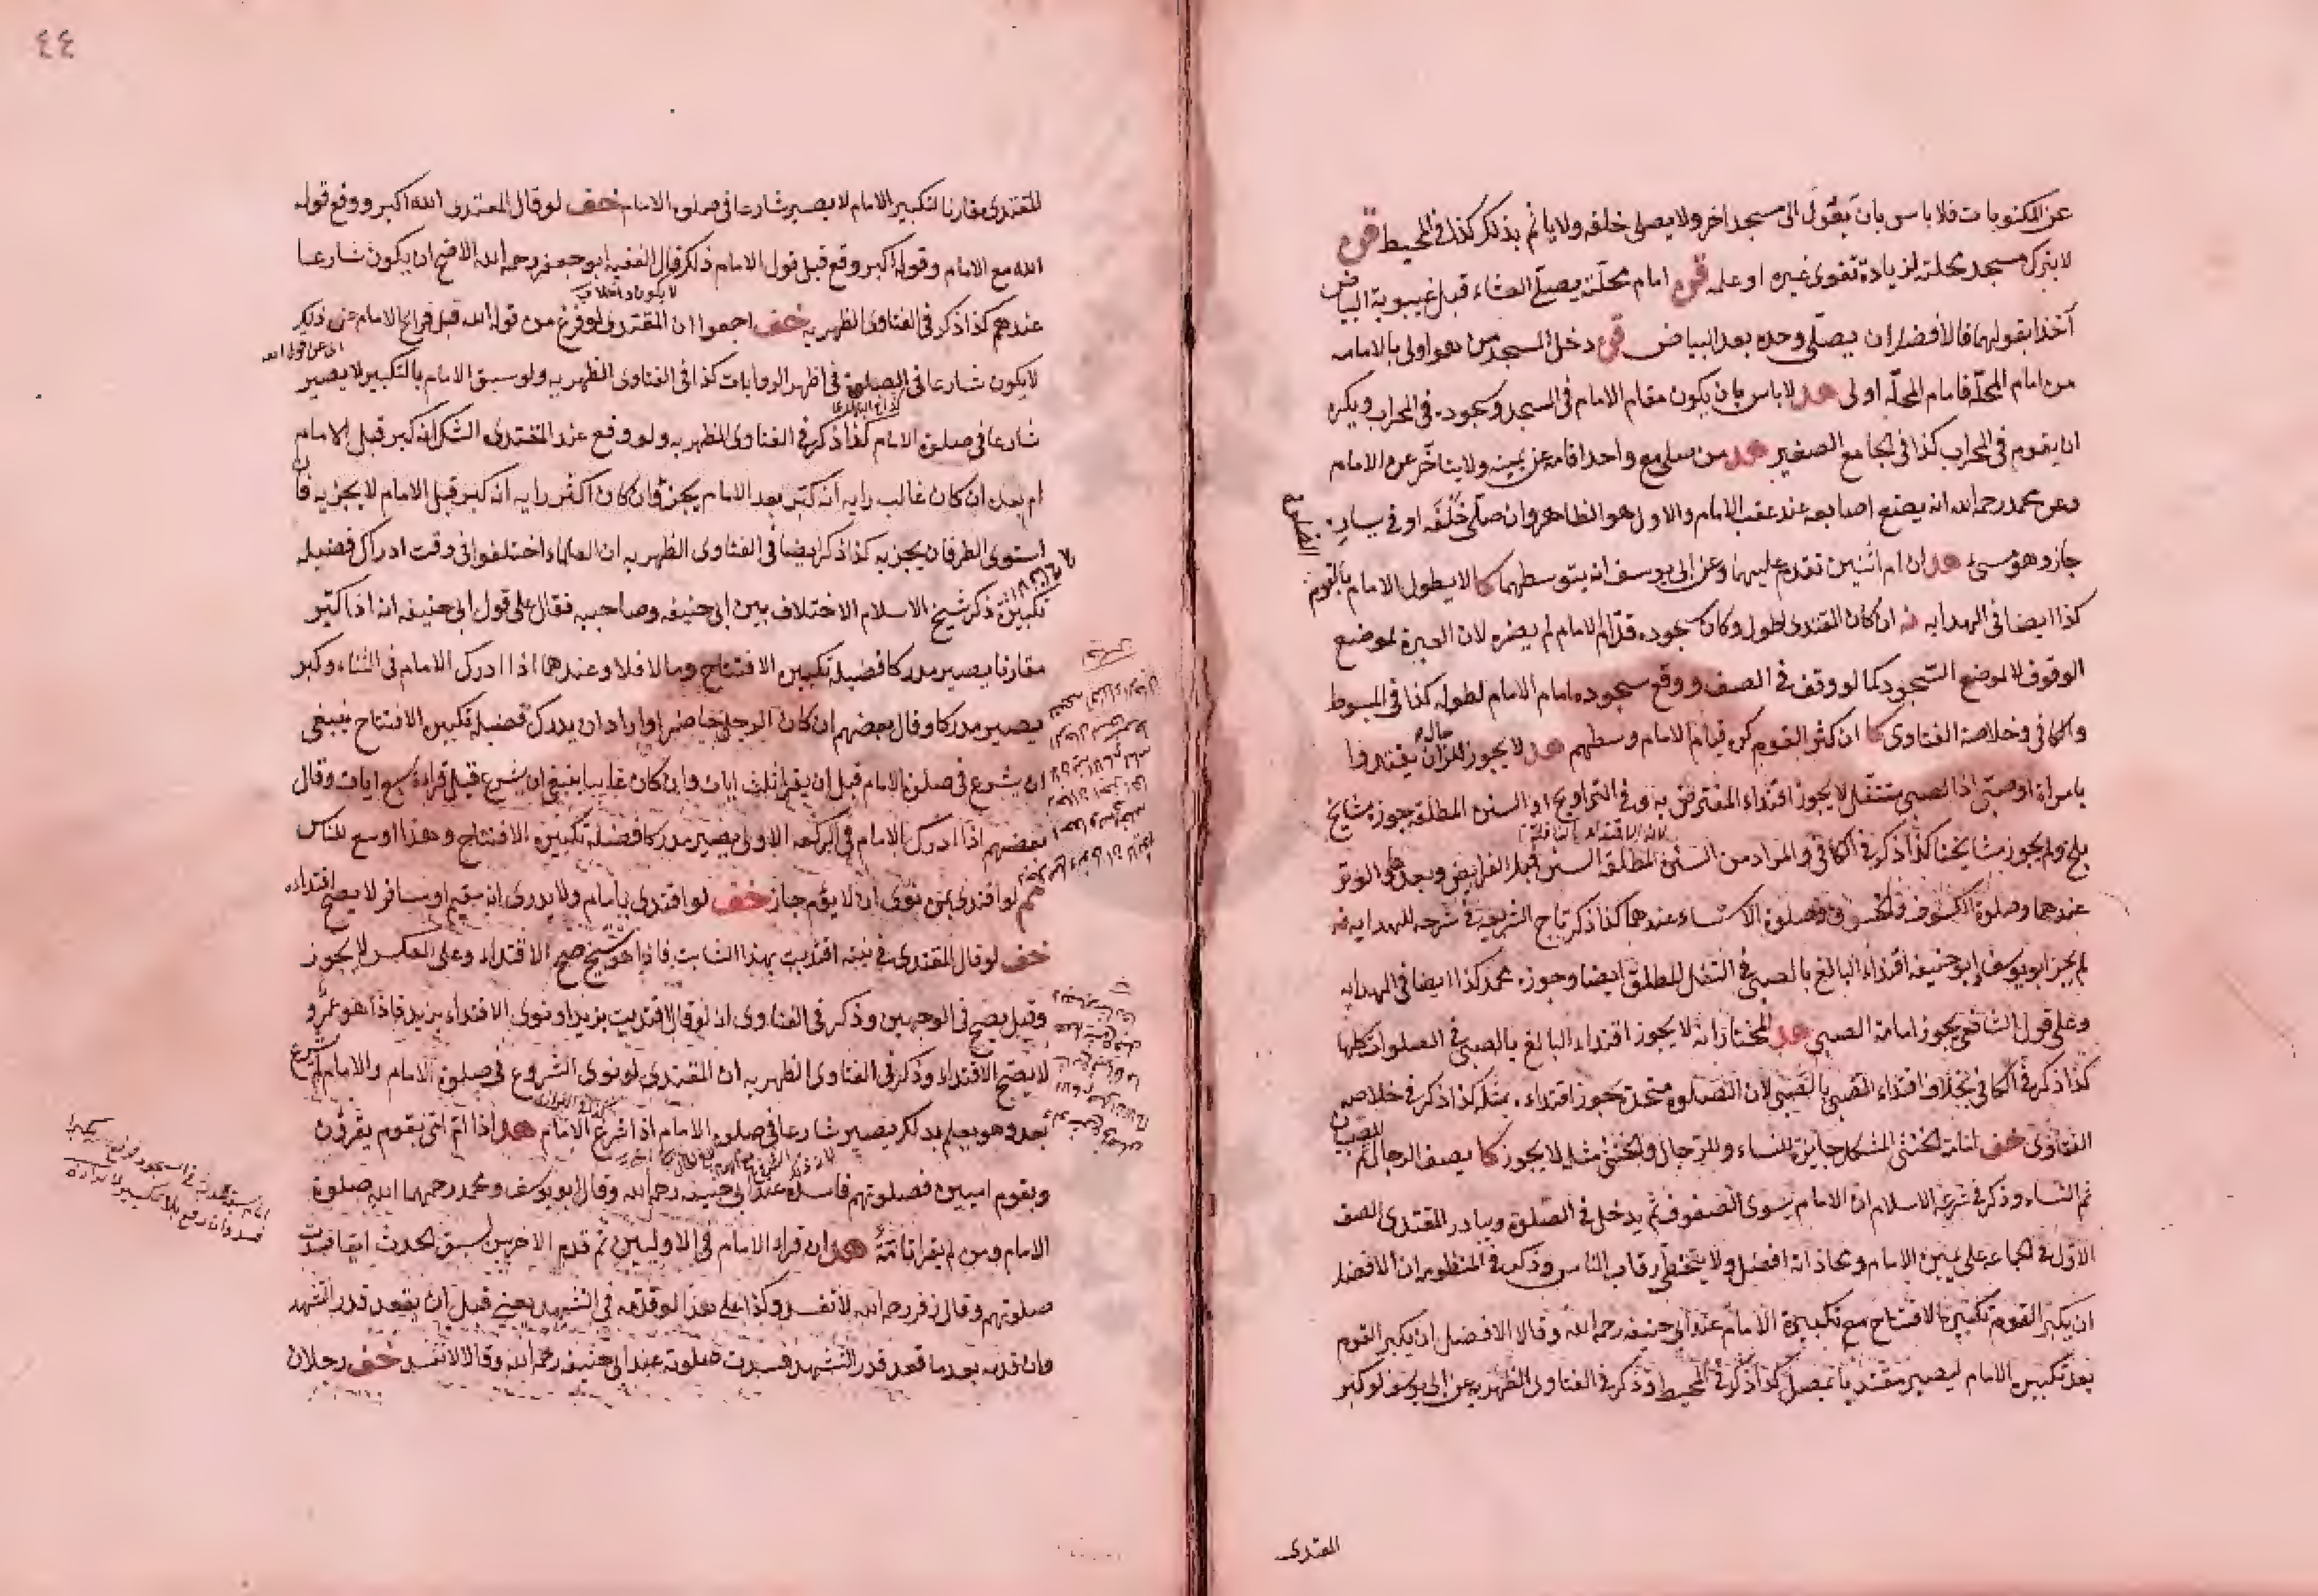 عن المكتوبات فلا باس بان يقول الى مسجد اخر ولا يصلى خلفه ولا ياثم بذلك كذا في المحيط
لا يترك مسجد محلته لزيادة تقوى غيره او علمه امام محلته يصلي العشاء قبل غيبوبة البياض
آخذا بقولهما فالأفضل ان يصلى وحده بعد البياض دخل المسجد من هو اولى بالامامة
من امام المحلة فامام المحلة اولى هد لا باس بان يكون مقام الامام في المسجد وسجوده في المحراب ويكره
ان يقوم في المحراب كذا في الجامع الصغير هد من صلى مع واحد اقامه عن يمينه ولا يتاخر عن الامام
وعن محمد رحمه الله انه يضع اصابعه عند عقب الامام والاول هو الظاهر وان صلى خلفه او في يساره
جاز وهو مسئ هد ان ام اثنين تقدم عليهما وعن ابى يوسف انه يتوسطهما كا لا يطول الامام بالقوم
الصلوة
كذا ايضا في الهدايه ان كان المقتدى اطول وكان سجوده قدام الامام لم يضره لان العبرة لموضع
الوقوف لا لموضع السجود كما لو وقف في الصف ووقع سجوده امام الامام لطوله كذا في المبسوط
والكافي وخلاصة الفتاوى كا ان كثر القوم كره قيام الامام وسطهم هد لا يجوز للرجال ان يقتدوا
بامراة او صبى اذ الصبى متنفل لا يجوز اقتداء المفترض به وفي التراويح او السنن المطلقة جوزه مشايخ
بلخ ولم يجوز مشايخنا كذا ذكر في الكافي والمراد من السنن المطلقة السنن قبل الفرايض وبعدها والوتر
عندهما وصلوة الكسوف والخسوف وصلوة الاستسقاء عندهما كذا ذكر تاج الشريعة في شرحه للهدايه
لم يجز ابو يوسف وابو حنيفه اقتداء البالغ بالصبى في النفل المطلق ايضا وجوزه محمد كذا ايضا في الهدايه
وعلى قول الشافعى يجوز امامة الصبى هد المختار انه لا يجوز اقتداء البالغ بالصبى في الصلوات كلها
كذا ذكر في الكافي بخلاف اقتداء الصبى بالصبى لان الصلوة متحدة يجوز اقتداء بمثله كذا ذكر في خلاصه
الفتاوى خف امامة الخنثى المشكل جايزة للنساء وللرجال والخنثى مثله لا يجوز كا يصف الرجال ثم الصبيان
ثم النساء وذكر في شرعة الاسلام ان الامام يسوى الصفوف ثم يدخل في الصلوة ويبادر المقتدى الصف
الاول في الجماعه على يمين الامام ومحاذاته افضل ولا يتخطى رقاب الناس وذكر في المنظومه ان الافضل
ان يكبر القوم تكبيرة الافتتاح مع تكبيرة الامام عند ابى حنيفه رحمه الله وقالا الافضل ان يكبر القوم
بعد تكبير الامام ليصير مقتديا بمصل كذا ذكر في المحيط وذكر في الفتاوى الظهريه عن ابى يوسف لو كبر
المقتدى
٤٤
المقتدى مقارنا لتكبير الامام لا يصير شارعا في صلوة الامام خف لو قال المقتدى الله اكبر ووقع قوله
الله مع الامام وقوله اكبر وقع قبل قول الامام ذلك قال الفقيه ابو جعفر رحمه الله الاصح ان يكون شارعا
عندهم كذا ذكر في الفتاوى الظهريه خف اجمعوا ان المقتدى لو فرغ من قوله الله قبل فراغ الامام عن ذلك
لا يكون شارعا في الصلوة في اظهر الروايات كذا في الفتاوى الظهريه ولو سبق الامام بالتكبير لا يصير
شارعا في صلوة الامام كذا ذكر في الفتاوى الظهريه ولو وقع عند المقتدى الشك انه كبر قبل الامام
ام بعده ان كان غالب رايه انه كبر بعد الامام يجزئ وان كان اكثر رايه انه كبر قبل الامام لا يجزيه فان
استوى الطرفان يجزيه كذا ذكر ايضا في الفتاوى الظهريه ان العلماء اختلفوا في وقت ادراك فضيله
تكبيرة ذكر شيخ الاسلام الاختلاف بين ابى حنيفه وصاحبيه فقال على قول ابى حنيفه انه اذا كبر
مقارنا يصير مدركا فضيلة تكبيرة الافتتاح وما لا فلا وعندهما اذا ادرك الامام في الثناء وكبر
يصير مدركا وقال بعضهم ان كان الرجل حاضرا واراد ان يدرك فضيلة تكبيرة الافتتاح ينبغى
ان يشرع في صلوة الامام قبل ان يقرا ثلث ايات وان كان غايبا ينبغى ان يشرع قبل قراءة سبع ايات وقال
بعضهم اذا ادرك الامام في الركعه الاولى يصير مدركا فضيلة تكبيرة الافتتاح وهذا اوسع للناس
لو اقتدى بمن نوى ان لا يؤم جاز خف لو اقتدى بامام ولا يدرى انه مقيم او مسافر لا يصح اقتداءه
خف لو قال المقتدى في نيته اقتديت بهذا الشاب فاذا هو شيخ صح الاقتداء وعلى العكس لا يجوز
وقيل يصح في الوجهين وذكر في الفتاوى انه لو قال اقتديت بزيد او نوى الاقتداء بزيد فاذا هو عمرو
لا يصح الاقتداء وذكر في الفتاوى الظهريه ان المقتدى لو نوى الشروع في صلوة الامام والامام لم يشرع
بعد وهو يعلم بذلك يصير شارعا في صلوة الامام اذا شرع الامام هد اذا ام امى بقوم يقرؤن
وبقوم اميين فصلوتهم فاسدة عند ابى حنيفه رحمه الله وقال ابو يوسف ومحمد رحمهما الله صلوة
الامام ومن لم يقرا تامة هد ان قراء الامام في الاوليين ثم قدم في الاخريين لسبق الحدث اميا فسدت
صلوتهم وقال زفر رحمه الله لا تفسد وكذا على هذا لو قدمه في التشهد يعنى قبل ان يقعد قدر التشهد
وان قدمه بعد ما قعد قدر التشهد فسدت صلوته عند ابى حنيفه رحمه الله وقالا لا تفسد خف رجلان